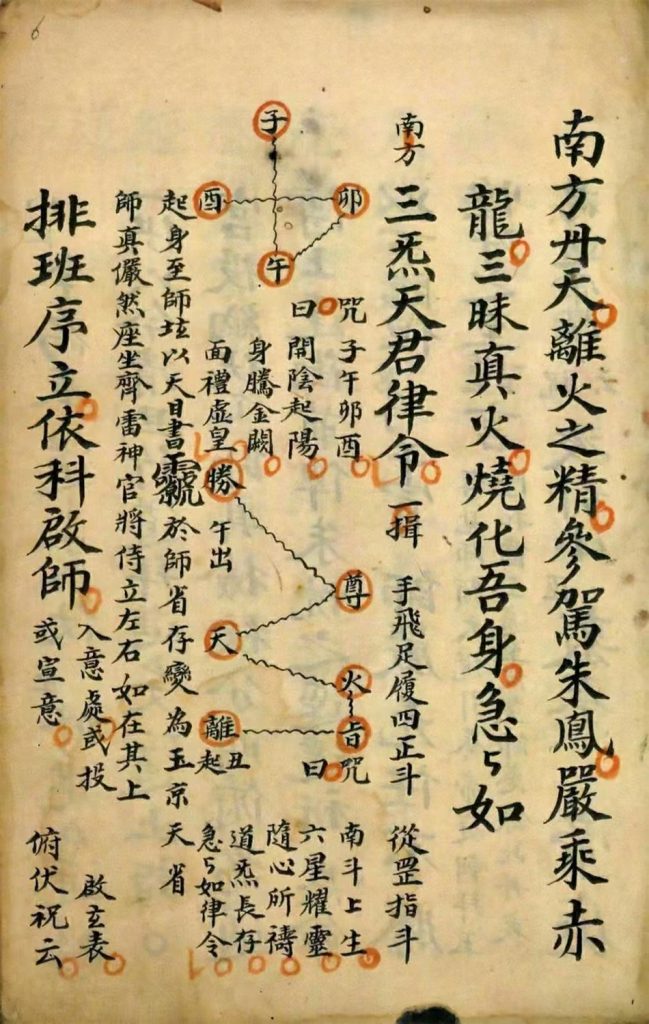 南方丹天離火之精參駕朱鳳嚴乘赤
龍三昧真火燒化吾身急々如
南方三炁天君律令一揖 手飛足履四正斗 從罡指斗
子
酉 卯
午
咒
曰
子午卯酉
開陰起陽
身騰金闕
面禮虛皇
勝
午出
尊
天
火
離
丑
起
咒
曰
南斗上生
六星耀靈
隨心所禱
道炁長存
急々如律令
起身至師坛以天目書 於師省存變為玉京天省
師真儼然座坐齊雷神官將侍立左右如在其上
排班序立依科啟師
入意處或投
或宣意
啟玄表
俯伏祝云
6